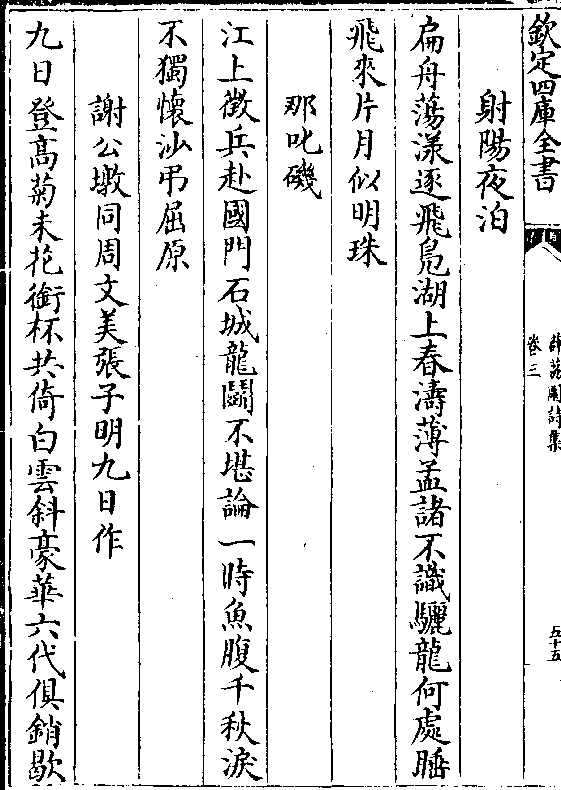 欽定四庫全書
薜荔園詩集
卷三
五十五
射陽夜泊
扁舟蕩漾逐飛鳬湖上春濤薄孟諸不識驪龍何處睡
飛來片月似明珠
那叱磯
江上徵兵赴國門石城龍鬭不堪論一時魚腹千秋淚
不獨懷沙弔屈原
謝公墩同周文美張子明九日作
九日登高菊未花銜杯共倚白雲斜豪華六代俱銷歇